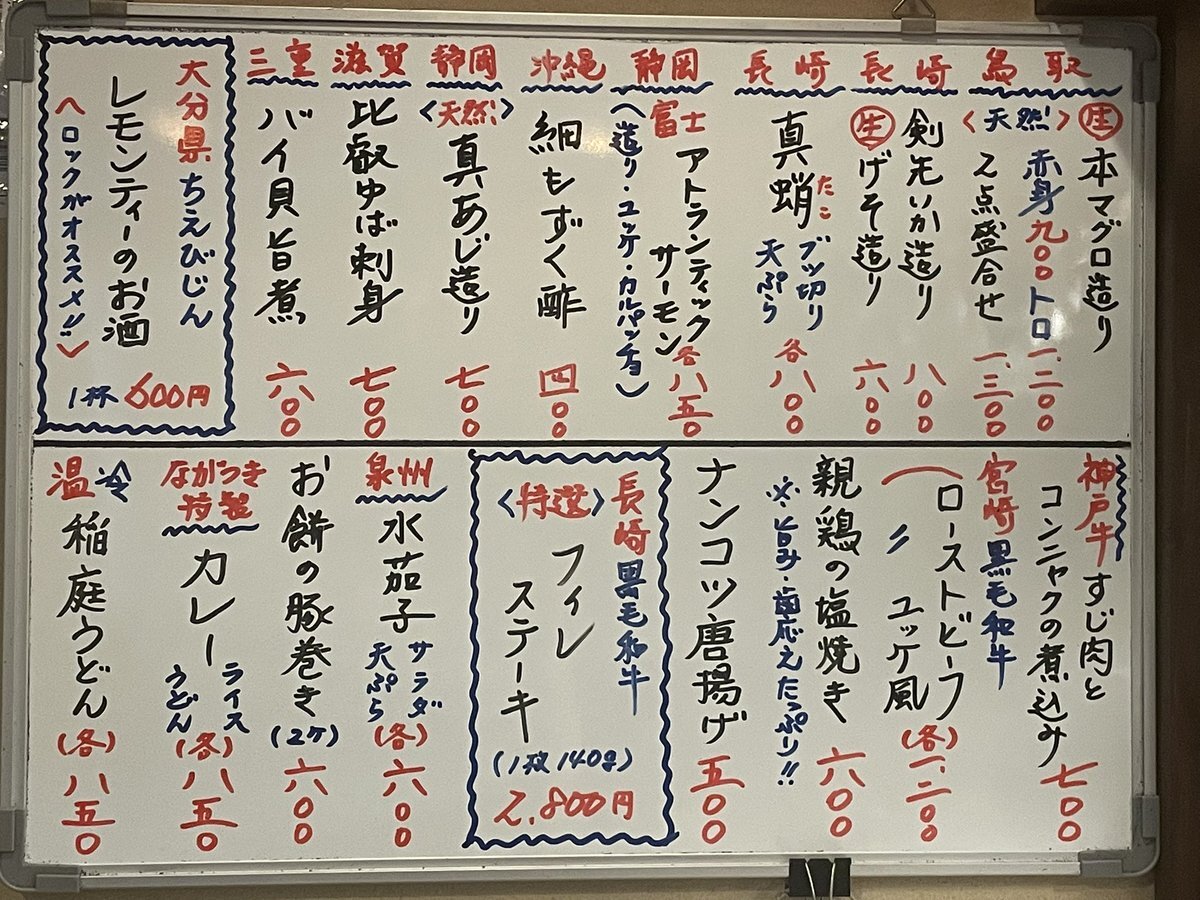 鳥取
㊍本マグロ造り
〈天然〉赤身九〇〇トロ一、二〇〇
2点盛合せ一、三〇〇
長崎
剣先いか造り八〇〇
生げそ造り六〇〇
長崎
真蛸たこ
ブツ切り
天ぷら
各八〇〇
静岡
富士
アトランティック
サーモン各八五〇
(造り・ユッケ・カルパッチョ)
沖縄
細もずく酢四〇〇
静岡
〈天然〉
真あじ造り七〇〇
滋賀
比叡ゆば刺身七〇〇
三重
バイ貝旨煮六〇〇
大分県ちえびじん
レモンティーのお酒
〈ロックがオススメ!!〉
1杯600円
神戸牛すじ肉と
コンニャクの煮込み七〇〇
宮崎黒毛和牛
ローストビーフ
〃ユッケ風
(各)一、二〇〇
親鶏の塩焼き六〇〇
※旨み・歯応えたっぷり!!
ナンコツ唐揚げ五〇〇
長崎黒毛和牛
〈特選〉
フィレ
ステーキ
(1枚140g)
2,800円
泉州
水茄子
サラダ
天ぷら
(各)六〇〇
お餅の豚巻き(2ヶ)六〇〇
ながつき
特製
カレー
ライス
うどん
(各)八五〇
温冷
稲庭うどん(各)八五〇